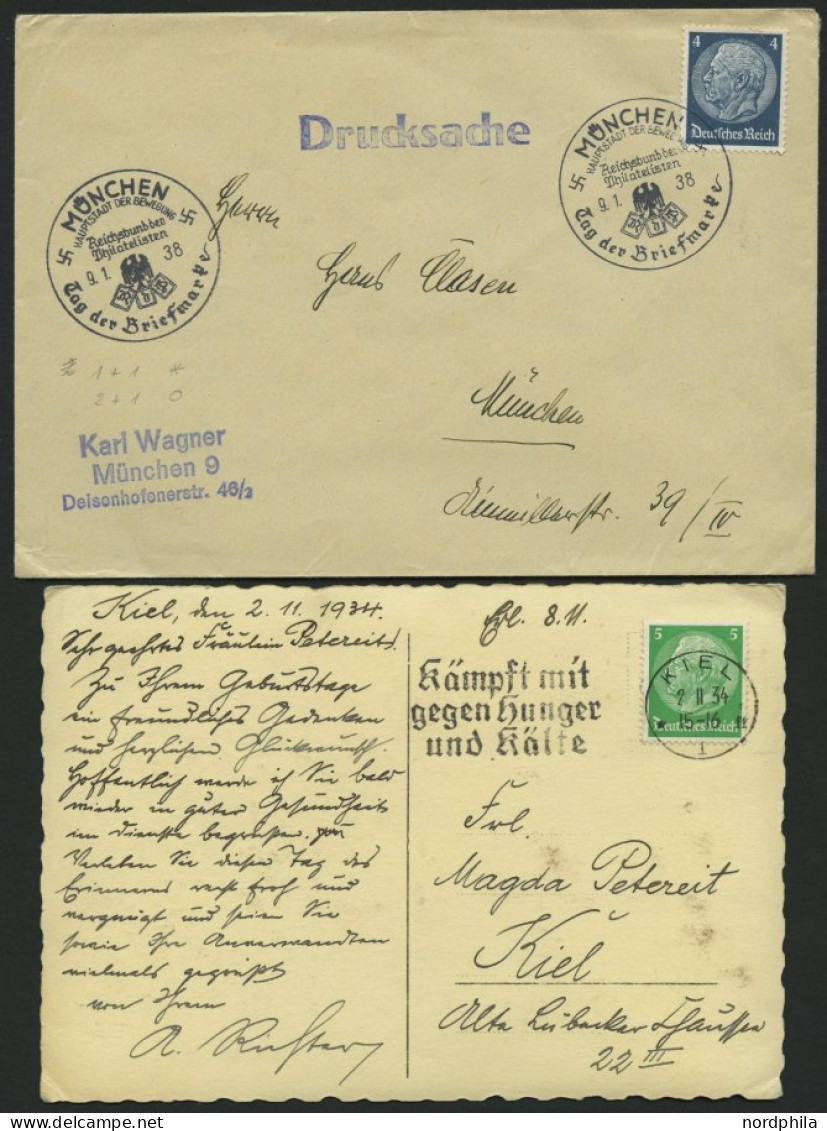 4 4
Deutsches Reich
Drucksache
MÜNCHEN
HAUPTSTADT DER BEWEGUNG
Reichsbund der
Philatelisten
9.1. 38
R d P
Tag der Briefmarke
MÜNCHEN
HAUPTSTADT DER BEWEGUNG
Reichsbund der
Philatelisten
9.1. 38
Tag der Briefmarke
Herrn
Hans Clasen
München
39/IV
1+1 *
2+1 O
Karl Wagner
München 9
Deisenhofenerstr. 46/2
Kiel, den 2.11.1934.
Sehr geehrtes Fräulein Petereit!
Zu Ihrem Geburtstage
ein freundliches Gedenken
und herzlichen Glückwunsch.
Hoffentlich werde ich Sie bald
wieder in guter Gesundheit
im Dienste begrüßen.
Verleben Sie diesen Tag des
Erinnerns recht froh und
vergnügt und seien Sie
sowie Ihre Anverwandten
vielmals gegrüßt
von Ihrem
A. Richter
8.11.
Kämpft mit
gegen Hunger
und Kälte
5 5
Deutsches Reich
KIEL
2 11 34
15-16
1
Frl.
Magda Petereit
Kiel
Alte Lübecker Chaussee
22 III
nordphila.com